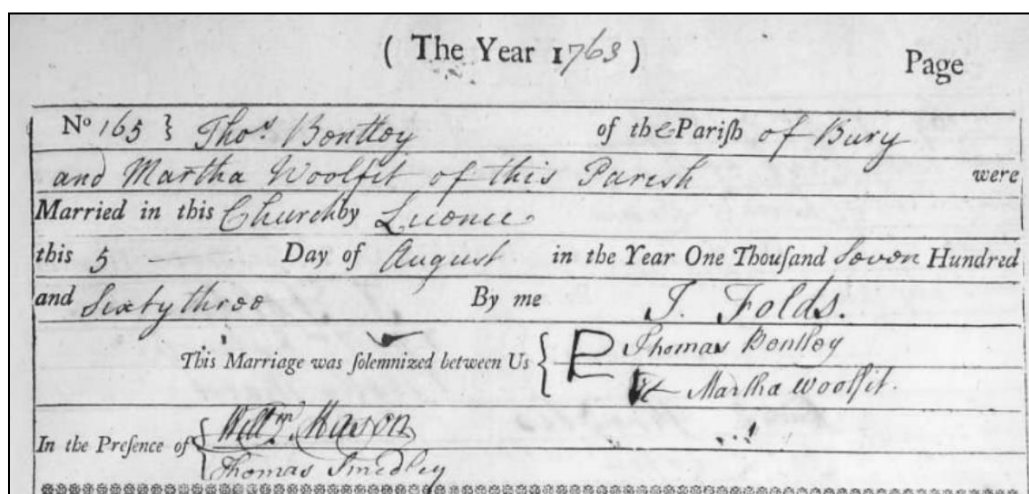 ( The Year 1763 )
Page
No 165 } Thos. Bentley of the Pariſh of Bury
and Martha Woolfit of this Parish were
Married in this Church by Licence
this 5 Day of August in the Year One Thouſand Seven Hundred
and Sixty three By me J. Folds.
This Marriage was ſolemnized between Us { Thomas Bentley
Martha Woolfit.
In the Preſence of { Willm. Mason
Thomas Smedley